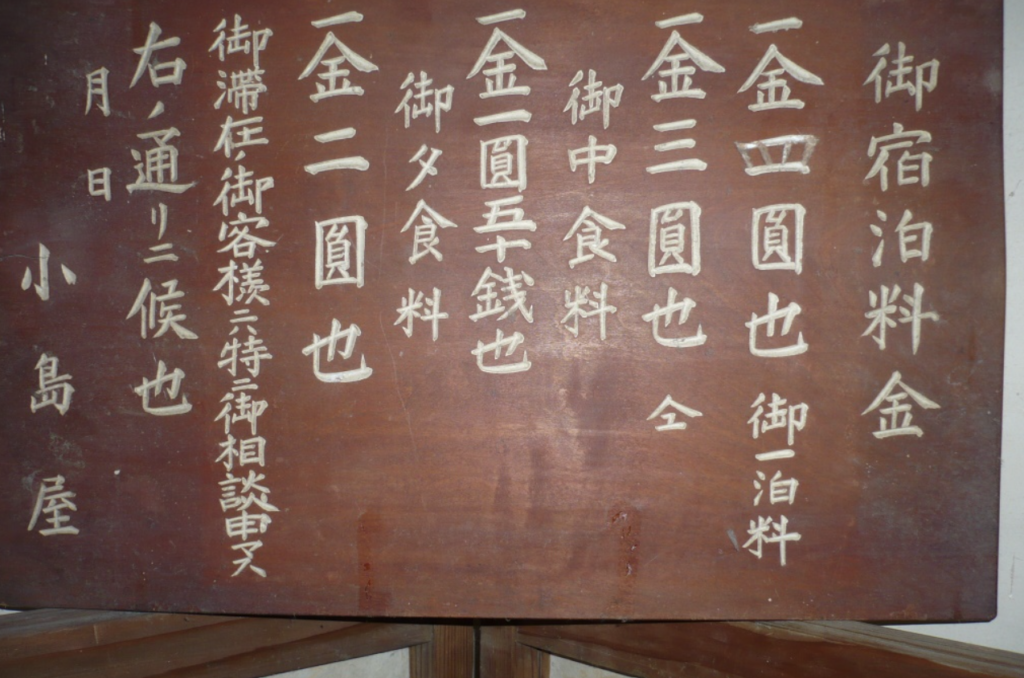 御宿泊料金
一金四圓也 御一泊料
一金三圓也 仝
御中食料
一金一圓五十銭也
御夕食料
一金二圓也
御滞在ノ御客様ニ特ニ御相談申マス
右ノ通リニ候也
月日
小島屋